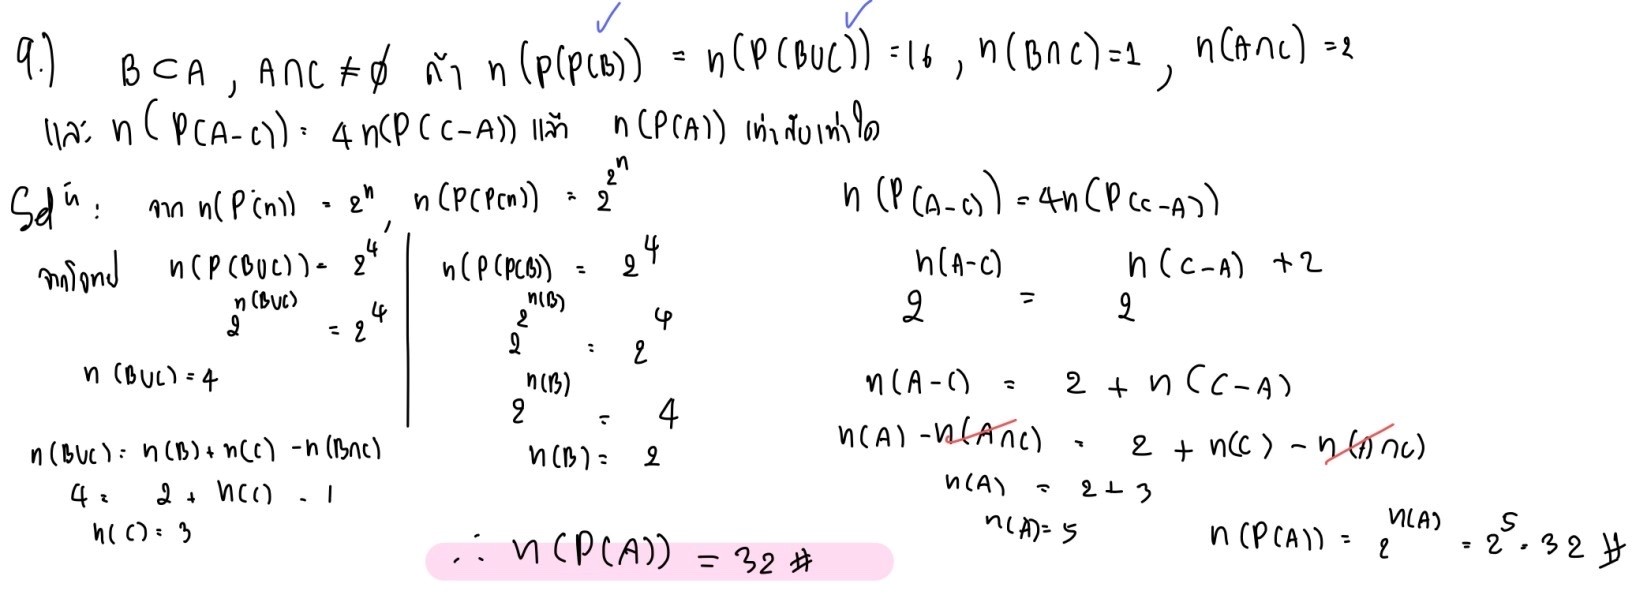 9.) B⊂A , A∩C ≠ ∅ ถ้า n(P(P(B)) = n(P(B∪C)) = 16 , n(B∩C)=1 , n(A∩C) = 2
และ n(P(A-C)) = 4n(P(C-A)) แล้ว n(P(A)) เท่ากับเท่าใด
จาก n(P(n)) = 2^n , n(P(P(n)) = 2^2^n
จากโจทย์ n(P(B∪C)) = 2^4
2^n(B∪C) = 2^4
n(B∪C) = 4
n(B∪C) = n(B) + n(C) - n(B∩C)
4 = 2 + n(C) - 1
n(C) = 3
n(P(P(B)) = 2^4
2^2^n(B) = 2^4
2^n(B) = 4
n(B) = 2
n(P(A-C)) = 4n(P(C-A))
2^n(A-C) = 2^n(C-A)+2
n(A-C) = 2 + n(C-A)
n(A) - n(A∩C) = 2 + n(C) - n(A∩C)
n(A) = 2+3
n(A) = 5
n(P(A)) = 2^n(A) = 2^5 = 32 #
∴ n(P(A)) = 32 #